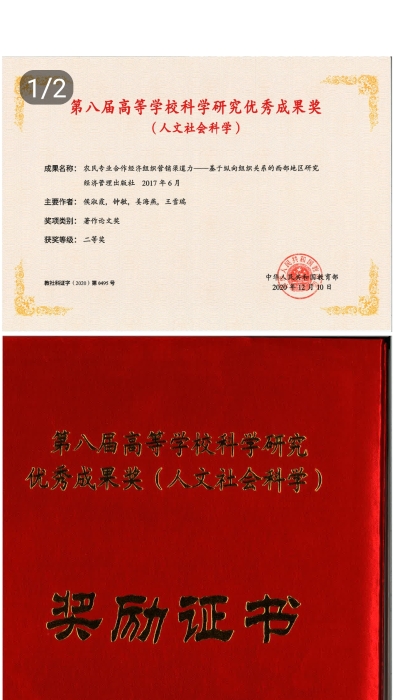 1/2
第八届高等学校科学研究优秀成果奖
（人文社会科学）
成果名称：农民专业合作经济组织营销渠道力——基于纵向组织关系的西部地区研究
经济管理出版社 2017 年 6 月
主要作者：侯淑霞，钟敏，姜海燕，王雪瑞
奖项类别：著作论文奖
获奖等级：二等奖
教社科证字（2020）第 0495 号
中华人民共和国教育部
2020 年 12 月 10 日
第八届高等学校科学研究
优秀成果奖（人文社会科学）
奖励证书